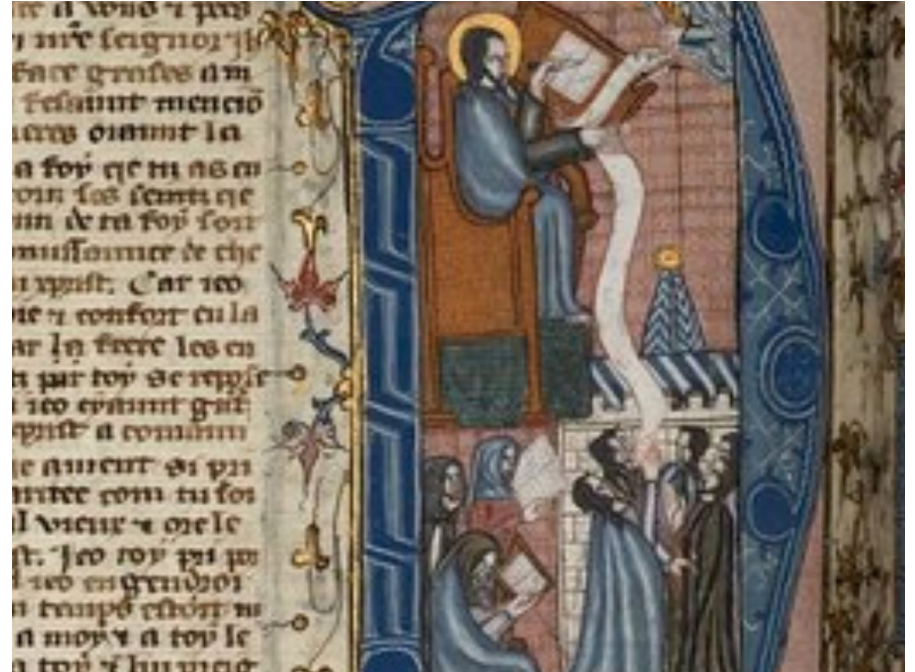 e a vous ⁊ pees
nr̄e seignor ih
face grases a m
fesaunt menciō
ieres oiaunt la
a foy qe tu as en
les seintz qe
un de ta foy soit
nuissaunce de che
u xpist. Car ieo
oie ⁊ confort en la
ar la frere les en
par toy se repose
ieo eiaunt
xpist a comaun
ie ament si pri
aritee com tu soi
l vieux ⁊ ore le
st. Ieo toy pri
ieo engendroi
n temps estoit
a moy ⁊ a toy le
a toy ⁊ lui